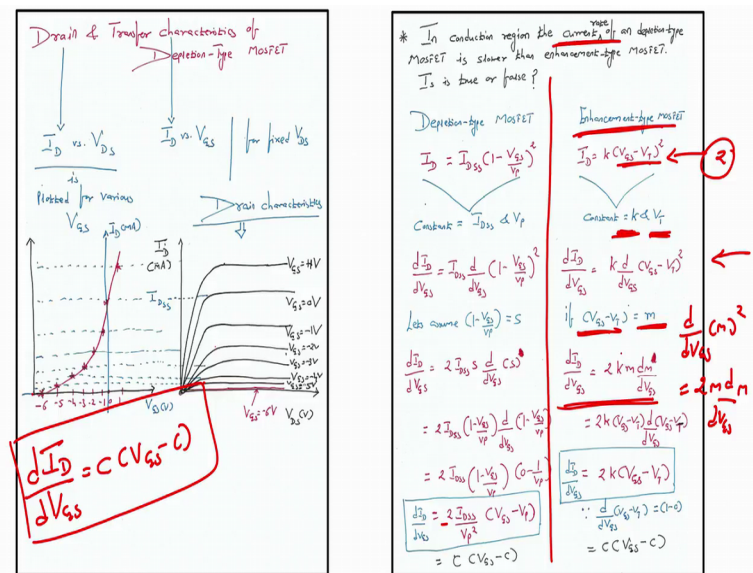 Drain & Transfer characteristics of
Depletion-Type MOSFET
I_D vs. V_DS
I_D vs. V_GS
for fixed V_DS
is
Plotted for various
V_GS
Drain characteristics
I_D(mA)
I_D
(mA)
V_GS=+1V
I_DSS
V_GS=0V
V_GS=-1V
V_GS=-2V
V_GS=-3V
V_GS=-4V
V_GS=-5V
-6 -5 -4 -3 -2 -1 0 1
V_GS(V)
V_GS=-6V
V_DS(V)
dI_D/dV_GS = C(V_GS-C)
* In conduction region the current rate of an depletion-type
MOSFET is slower than enhancement-type MOSFET.
Is true or false?
Depletion-type MOSFET
I_D = I_DSS (1-V_GS/V_P)^2
Constant = I_DSS & V_P
dI_D/dV_GS = I_DSS d/dV_GS (1-V_GS/V_P)^2
Lets assume (1-V_GS/V_P) = s
dI_D/dV_GS = 2 I_DSS s d/dV_GS (s)
= 2 I_DSS (1-V_GS/V_P) d/dV_GS (1-V_GS/V_P)
= 2 I_DSS (1-V_GS/V_P) (0-1/V_P)
dI_D/dV_GS = 2 I_DSS/V_P^2 (V_GS-V_P)
= C (V_GS-C)
Enhancement-type MOSFET
I_D = k(V_GS-V_T)^2
2
Constant = k & V_T
dI_D/dV_GS = k d/dV_GS (V_GS-V_T)^2
if (V_GS-V_T) = m
d/dV_GS (m)^2
= 2m dm/dV_GS
dI_D/dV_GS = 2k m dm/dV_GS
= 2k(V_GS-V_T) d(V_GS-V_T)/dV_GS
dI_D/dV_GS = 2k(V_GS-V_T)
∵ d/dV_GS (V_GS-V_T) = (1-0)
= C(V_GS-C)